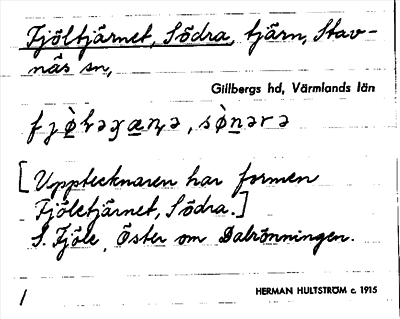 Fjöltjärnet, Södra, tjärn, Stav-
näs sn,
Gillbergs hd, Värmlands län
[Upptecknaren har formen
Fjöletjärnet, Södra.]
S. Fjöle, Öster om Dalrönningen.
1
HERMAN HULTSTRÖM c. 1915